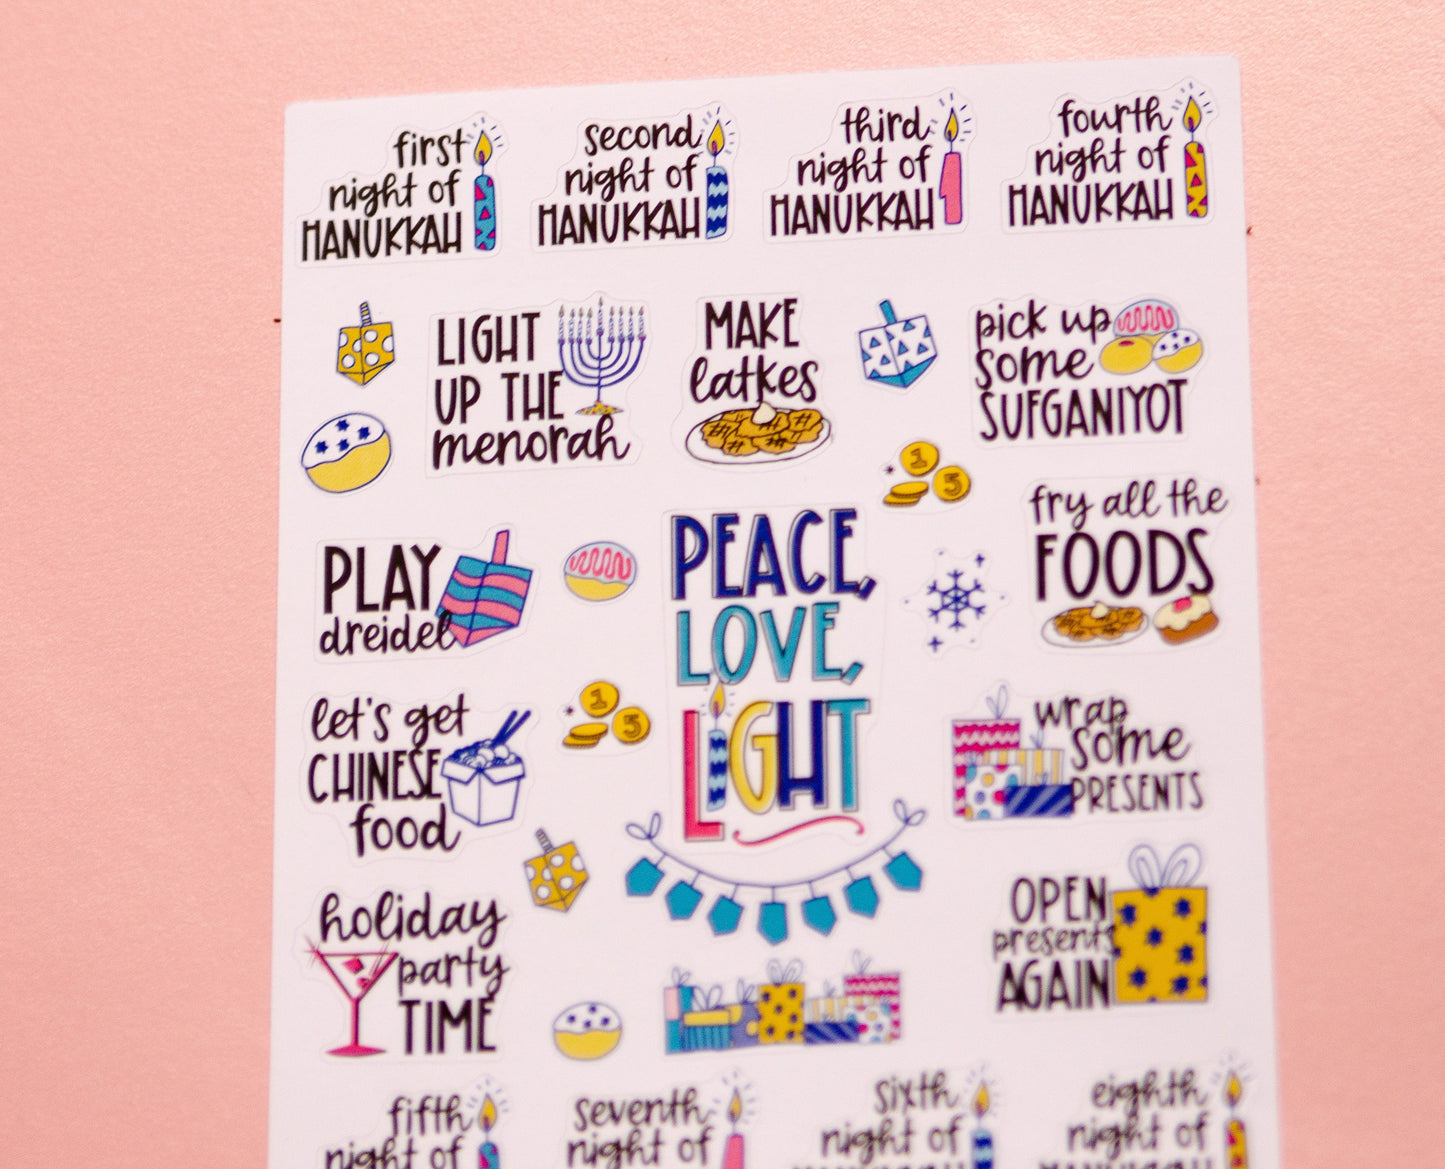 first
night of
HANUKKAH
second
night of
HANUKKAH
third
night of
HANUKKAH
fourth
night of
HANUKKAH
LIGHT
UP THE
menorah
MAKE
latkes
pick up
some
SUFGANIYOT
1
5
fry all the
FOODS
PLAY
dreidel
PEACE,
LOVE,
LIGHT
let's get
CHINESE
food
1
5
wrap
some
PRESENTS
holiday
party
TIME
OPEN
presents
AGAIN
fifth
night of
seventh
night of
sixth
night of
HANUKKAH
eighth
night of
HANUKKAH